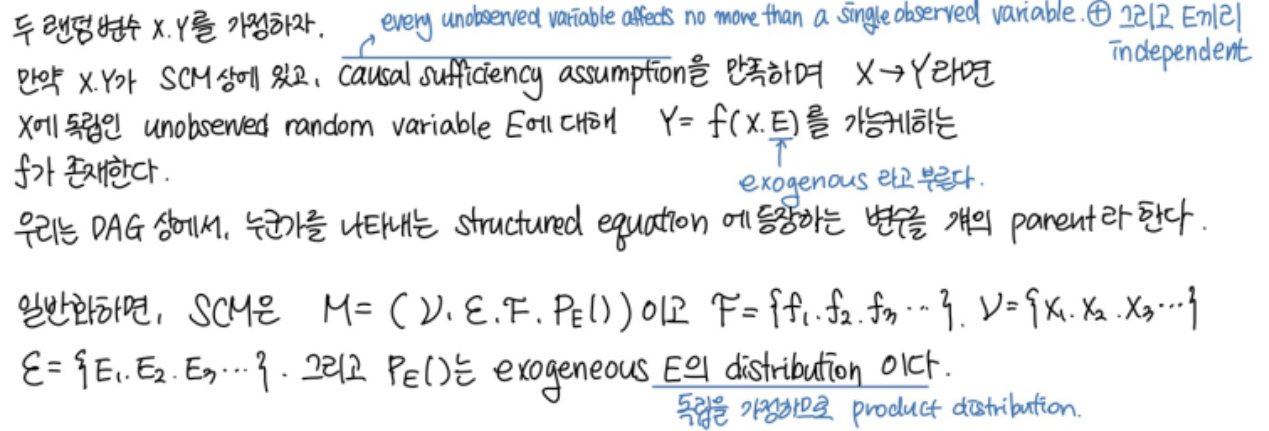 every unobserved variable affects no more than a single observed variable. ⊕ 그리고 E끼리
independent
두 랜덤변수 X.Y를 가정하자.
만약 X.Y가 SCM상에 있고, causal sufficiency assumption을 만족하며 X→Y라면
X에 독립인 unobserved random variable E에 대해 Y= f(X.E)를 가능케하는
f가 존재한다.
exogenous 라고 부른다.
우리는 DAG 상에서, 누군가를 나타내는 structured equation 에 등장하는 변수를 걔의 parent라 한다.
일반화하면, SCM은 M= (V. Ɛ. F. P_E()) 이고 F= {f₁.f₂.f₃ ⋯}. V= {X₁.X₂.X₃⋯}
Ɛ= {E₁.E₂.E₃⋯}. 그리고 P_E()는 exogeneous E의 distribution 이다.
독립을 가정하므로 product distribution.